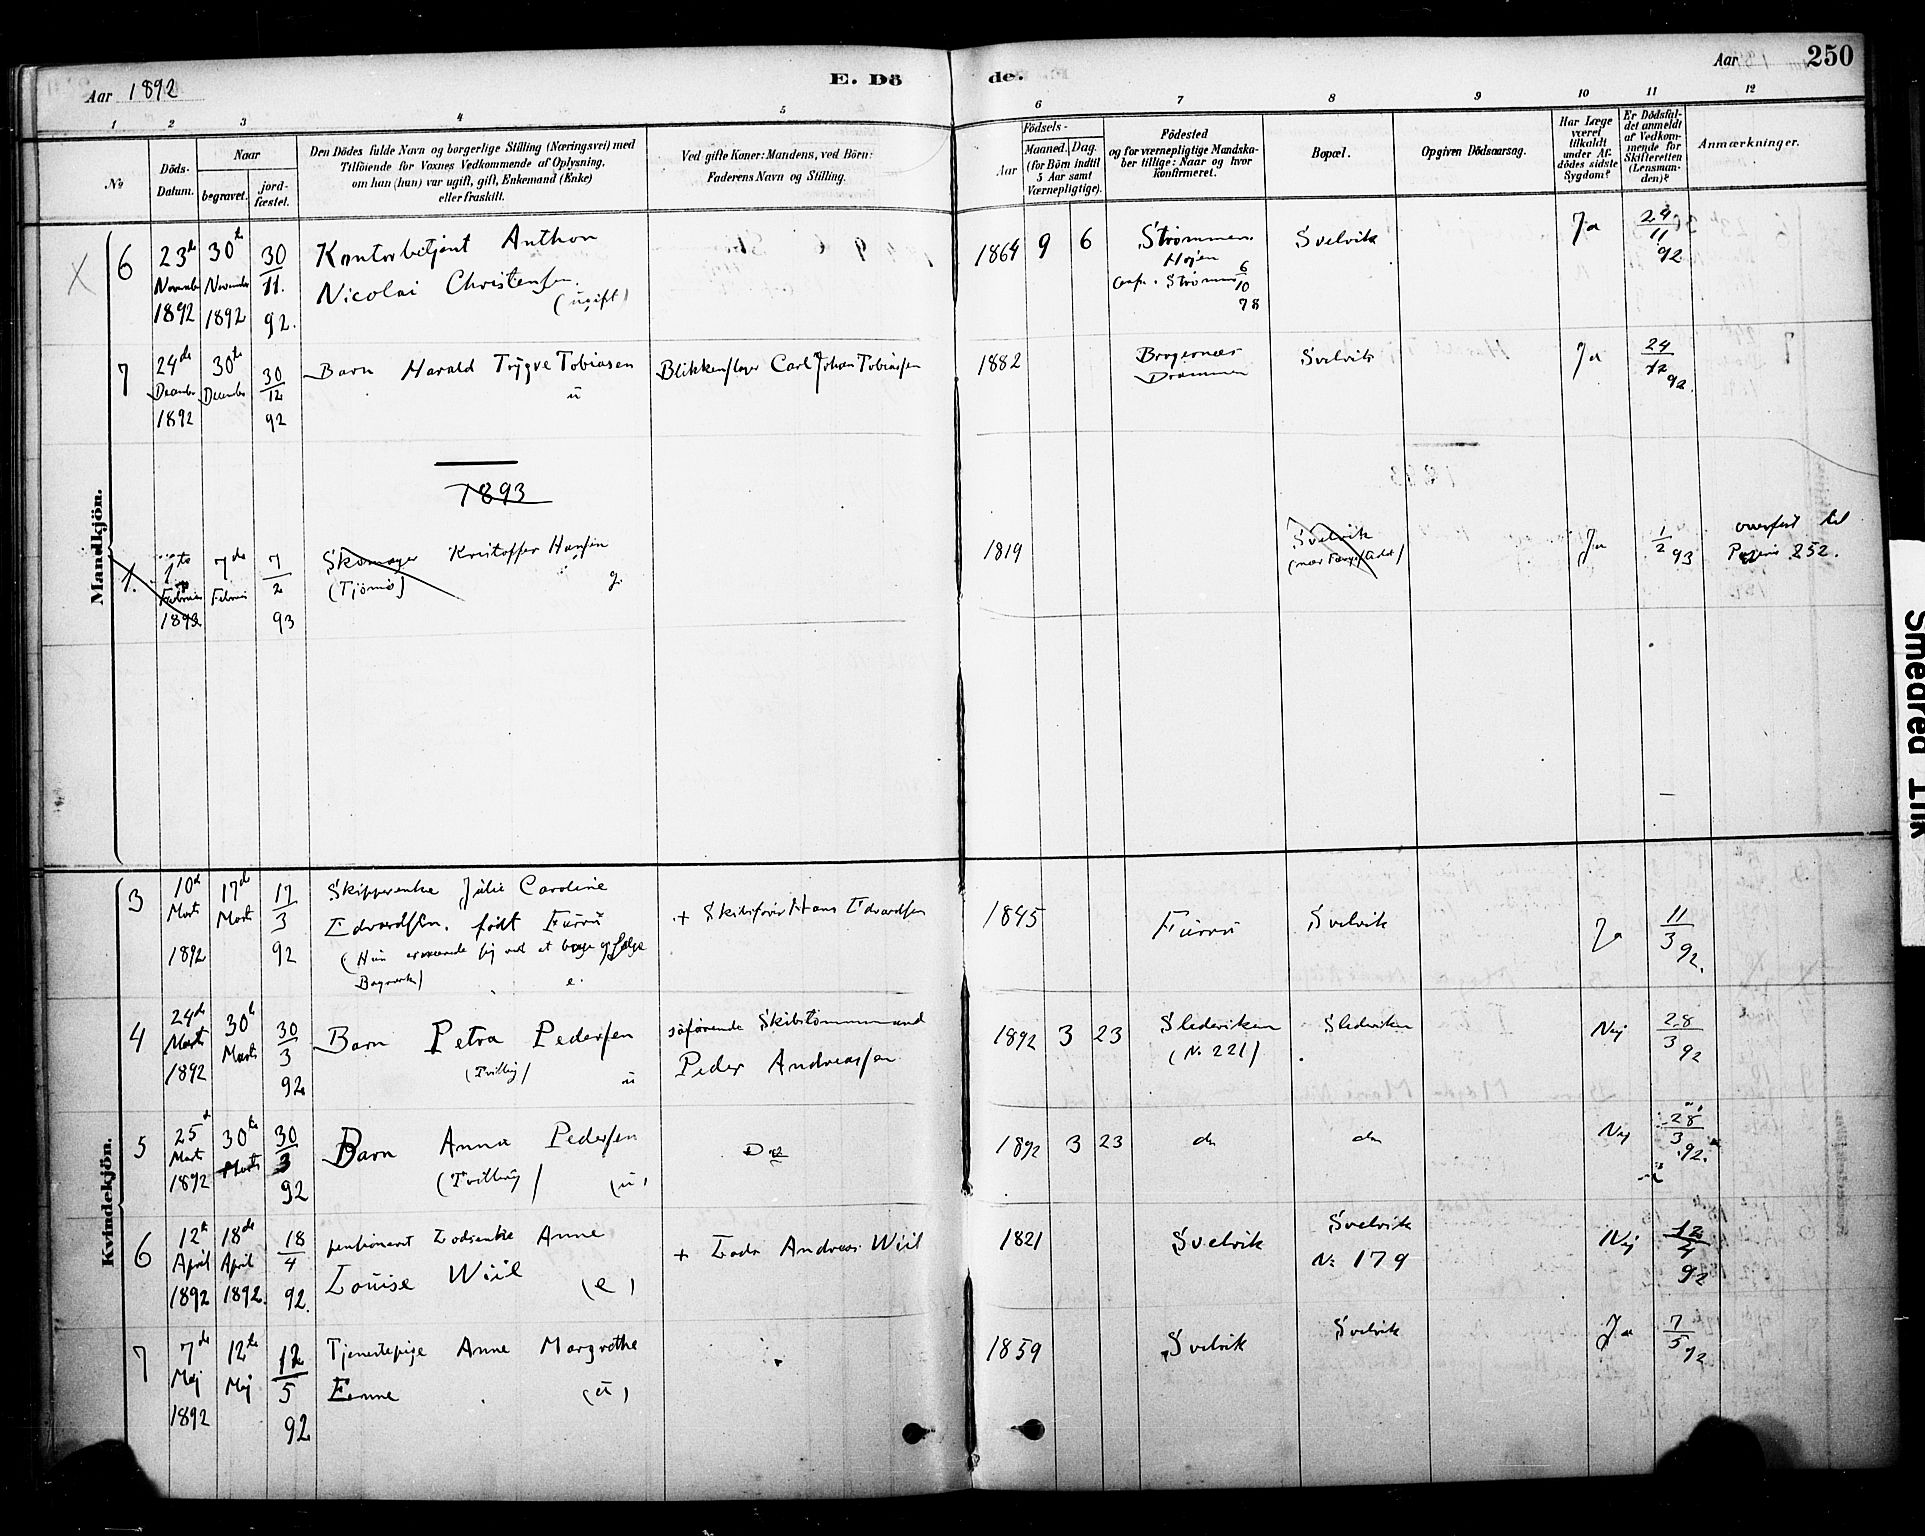 Aar 1892
E. Dö
de.
Aar
250
1 2 3 4 5 6 7 8 9 10 11 12
No
Döds-
Datum.
Naar
begravet.
jord-
fæstet.
Den Dödes fulde Navn og borgerlige Stilling (Næringsvei) med
Tilföiende for Voxnes Vedkommende af Oplysning,
om han (hun) var ugift, gift, Enkemand (Enke)
eller fraskilt.
Ved gifte Koner: Mandens, ved Börn:
Faderens Navn og Stilling.
Födsels-
Aar
Maaned.
Dag.
(for Börn indtil
5 Aar samt
Værnepligtige).
Födested
og for værnepligtige Mandska-
ber tillige: Naar og hvor
konfirmeret.
Bopæl.
Opgiven Dödsaarsag.
Har Læge
været
tilkaldt
under Af-
dödes sidste
Sygdom?
Er Dödsfal-
det anmeldt
af Vedkom-
mende for
Skifteretten
(Lensman-
den)?
Anmærkninger.
Mandkjön.
6
23de
November
1892
30te
November
1892
30
11.
92.
Kontorbetjent Anthon
Nicolai Christensen.
(ugift)
1864 9 6
Strømmen
Conf. Strømmen 6
10
78
Svelvik
Ja
24
11
92
7
24de
December
1892
30te
December
30
12
92
Barn Harald Trygve Tobiasen
u
Blikkenslager Carl Johan Tobiassen
1882
Bragernæs
Drammen
Svelvik
Ja
24
12
92.
1893
1.
1te
Februar
1893
7de
Februar
7
2
93
Skomager Kristoffer Hansen
(Tjømø) g.
1819
Svelvik
Ja
1
2 93
overført til
Pagina 252.
Kvindekjön.
3
10de
Marts
1892
17de
Marts
17
3
92
Skipperenke Julie Caroline
Edvardsen. født Furru
e.
+ Skibsfører Hans Edvardsen
1845
Furru
Svelvik
Ja
11
3 92.
4
24de
Marts
1892
30te
Marts
30
3
92
Barn Petra Pedersen
(Tvilling) u
søfarende Skibstømmermand
Peder Andreassen
1892 3 23
Sledeviken
(No 221)
Sledviken
Nej
28
3 92
5
25de
Marts
1892
30te
Marts
30
3
92
Barn Anna Pedersen
(Tvilling) (u)
Do
1892 3 23
do
do
Nej
28
3 92.
6
12te
April
1892
18de
April
1892.
18
4
92.
pensioneret Lodsenke Anne
Louise Wiil (e)
+ Lods Andreas Wiil
1821
Svelvik
Svelvik
No 179
Nej
12
4
92
7
7de
Mai
1892
12te
Mai
12
5
92
Tjenestepige Anne Margrethe
(u)
1859
Svelvik
Svelvik
Ja
7
5 92
Smeared Ink